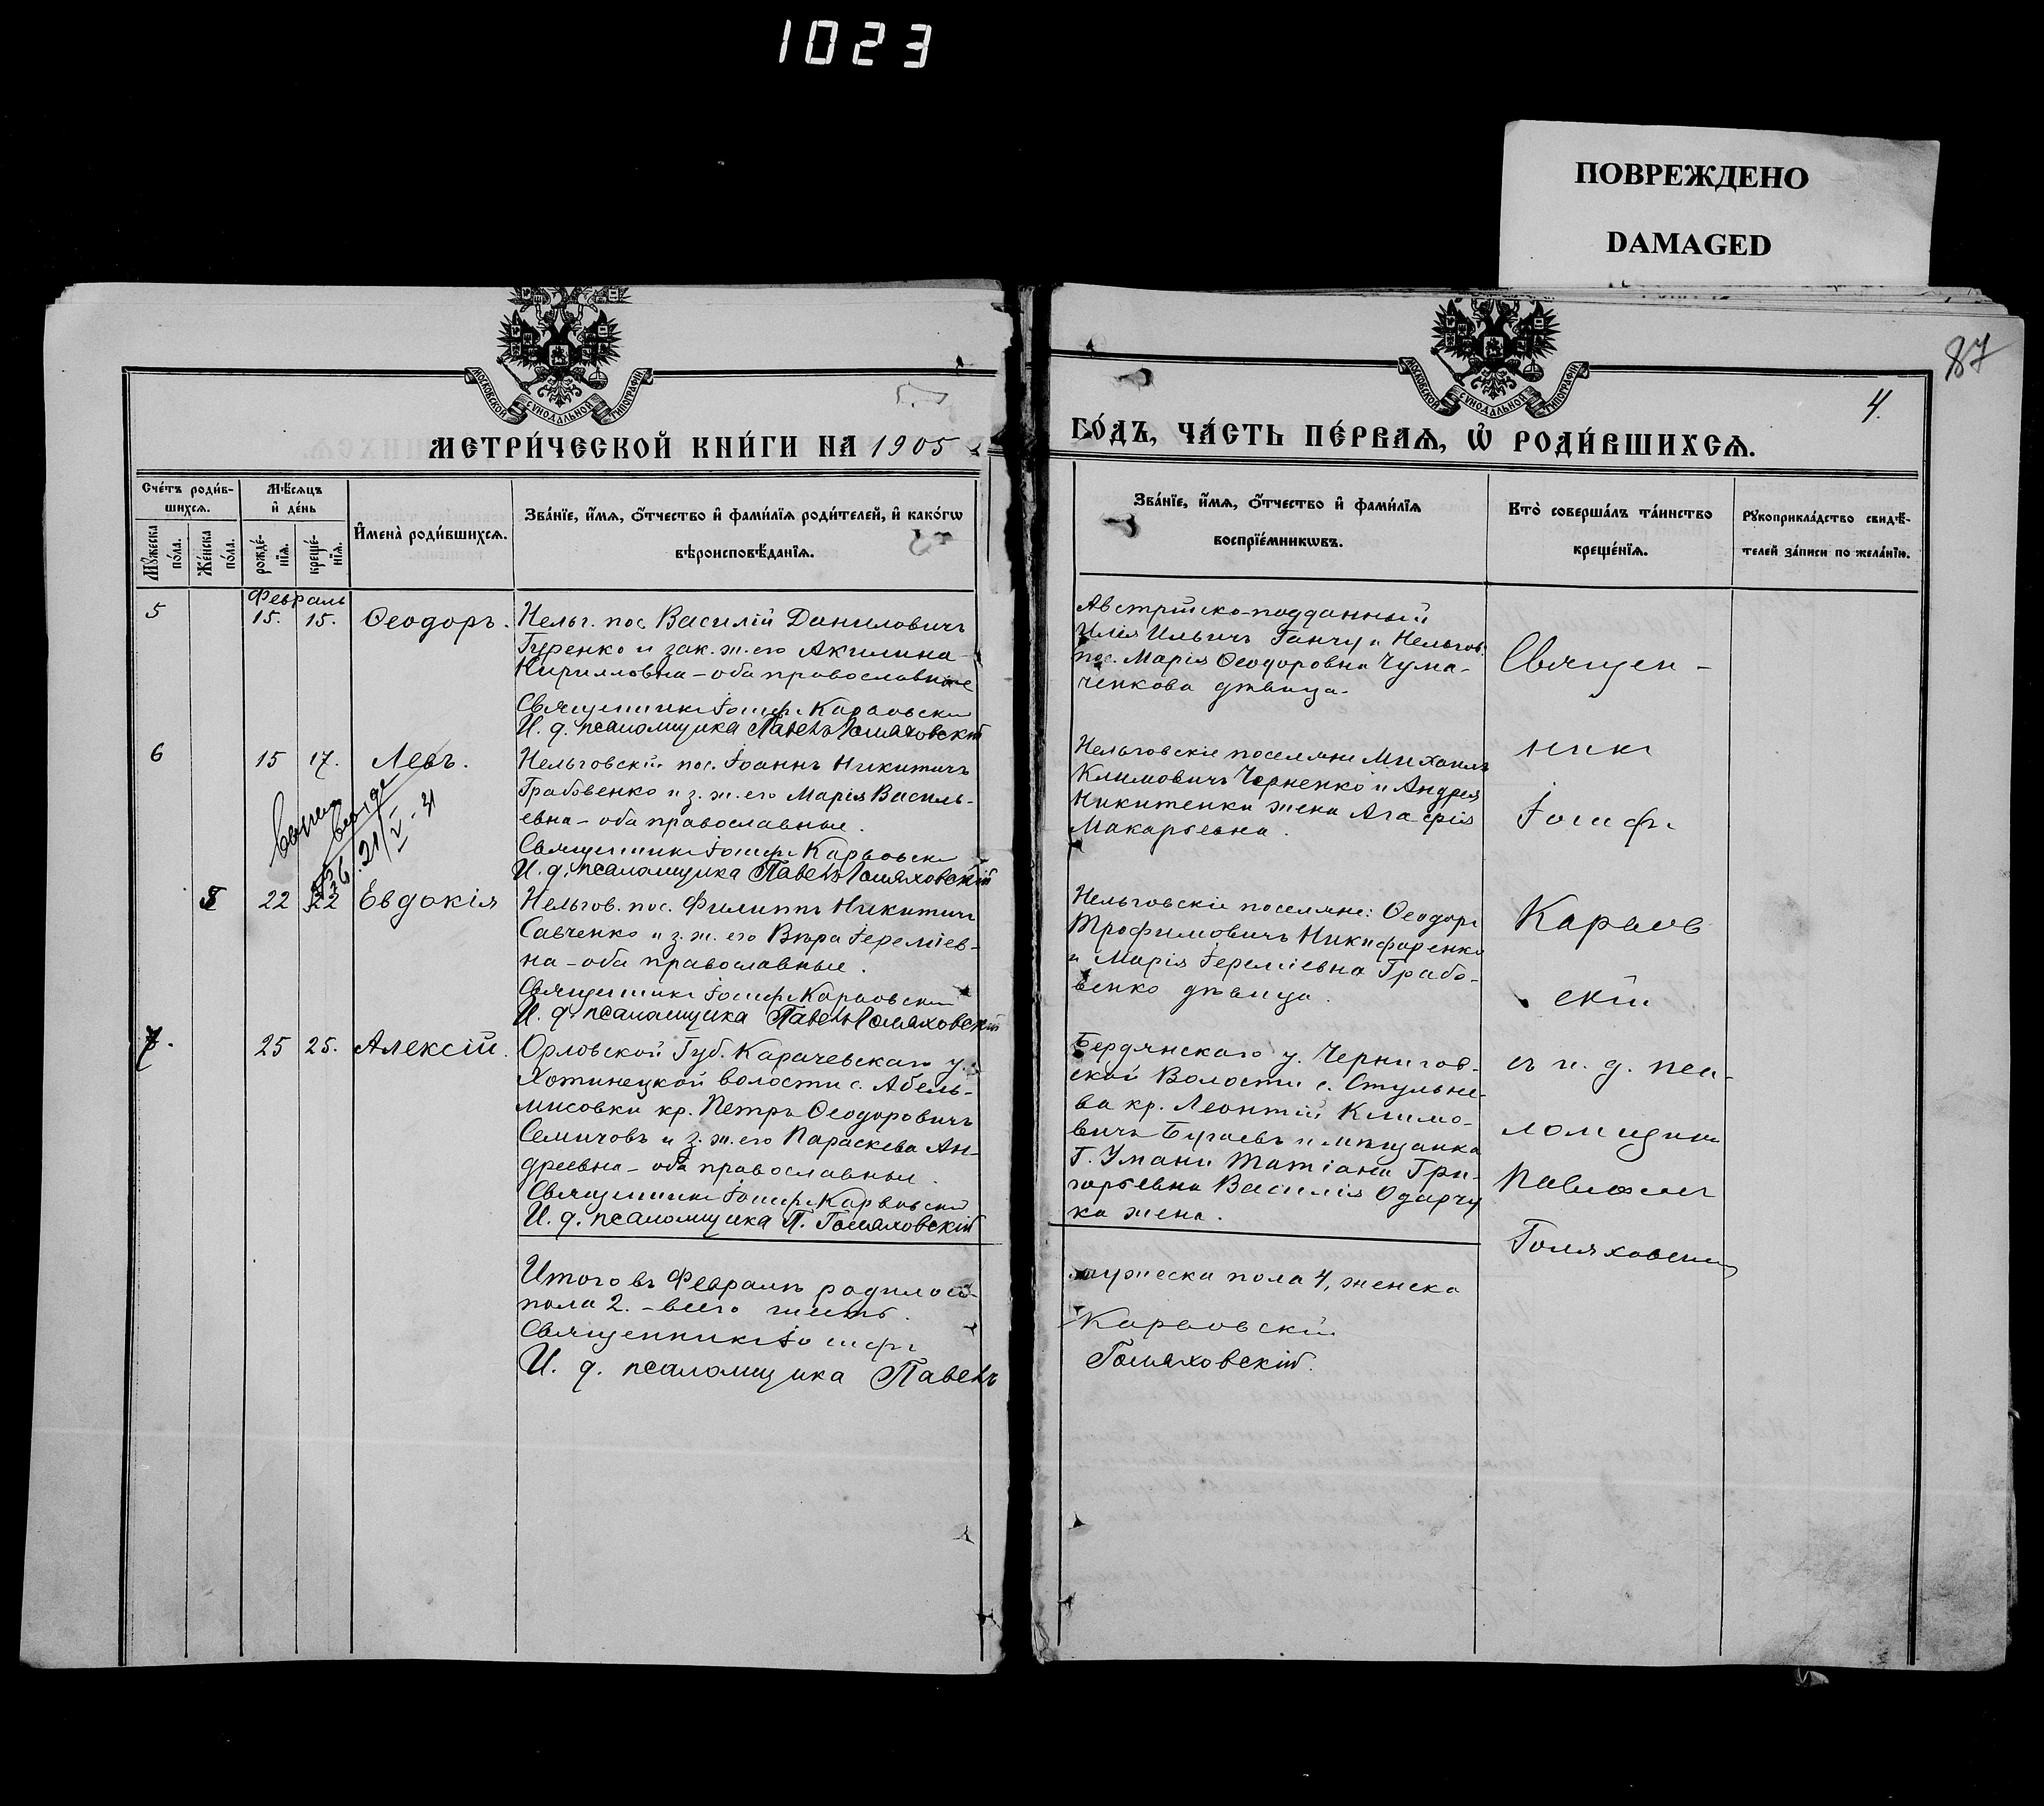 1023
ПОВРЕЖДЕНО
DAMAGED
87
4.
МОСКОВСКОЙ СѴНОДАЛЬНОЙ ТИПОГРАФІИ
МОСКОВСКОЙ СѴНОДАЛЬНОЙ ТИПОГРАФІИ
МЕТРИ́ЧЕСКОЙ КНИ́ГИ НА 1905
ГО́ДЪ, ЧА́СТЬ ПЕ́РВАѦ, Ѡ҆ РОДИ́ВШИХСѦ.
Сче́тъ роди́в-
шихсѧ.
Мꙋ́жеска по́ла.
Же́нска по́ла.
Мѣ́сѧцъ
и҆ де́нь
рожде́-нїѧ.
креще́-нїѧ.
И҆мена̀ роди́вшихсѧ.
Зва́нїе, и҆́мѧ, ѻ҆́тчество и҆ фами́лїѧ роди́телей, и҆ како́гѡ
вѣроисповѣ́данїѧ.
Зва́нїе, и҆́мѧ, ѻ҆́тчество и҆ фами́лїѧ
воспрїе́мникѡвъ.
Кто̀ соверша́лъ та́инство
креще́нїѧ.
Рꙋкоприкла́дство свидѣ́-
телей за́писи по жела́нїю.
Февраль
5 15. 15. Ѳеодоръ.
Нельг. пос. Василій Даниловичъ
Гуренко и зак. ж. его Акилина
Кирилловна – оба православные
Священникъ Іосифъ Карвовскій
И. д. псаломщика Павелъ Голяховскій
Австрійско-подданный
Илія Ильичъ Ганчу и Нельгов.
пос. Марія Ѳеодоровна Чума-
ченкова дѣвица.
6 15 17. Левъ.
21/V-31
Нельговскій пос. Іоаннъ Никитичъ
Грабовенко и з. ж. его Марія Василь-
евна – оба православные.
Священникъ Іосифъ Карвовскій
И. д. псаломщика Павелъ Голяховскій
Нельговскіе поселяне Михаилъ
Климовичъ Черненко и Андрея
Никитенки жена Агафія
Макарьевна.
22 22 Евдокія
Нельгов. пос. Филиппъ Никитичъ
Савченко и з. ж. его Вѣра Іереміев-
на – оба православные.
Священникъ Іосифъ Карвовскій
И. д. псаломщика Павелъ Голяховскій
Нельговскіе поселяне: Ѳеодоръ
Трофимовичъ Никифоренко
и Марія Іереміевна Грабо-
венко дѣвица.
7. 25 25. Алексій.
Орловской Губ. Карачевскаго у.
Хотинецкой волости с. Абель-
мисовки кр. Петръ Ѳеодоровичъ
Семичовъ и з. ж. его Параскева Ан-
дреевна – оба православные.
Священникъ Іосифъ Карвовскій
И. д. псаломщика П. Голяховскій
Бердянскаго у. Чернигов-
ской Волости с. Стульне-
ва кр. Леонтій Климо-
вичъ Бугаевъ и мѣщанка
Г. Умани Татіана Гри-
горьевна Василія Одарчу
ка жена.
Священ-
никъ
Іосифъ
Карвов
скій
съ и. д. пса-
ломщика
Павломъ
Голяховскимъ
Итого въ Февралѣ родилось
мужеска пола 4, женска
пола 2. – всего шесть.
Священникъ Іосифъ
Карвовскій
И. д. псаломщика Павелъ
Голяховскій.